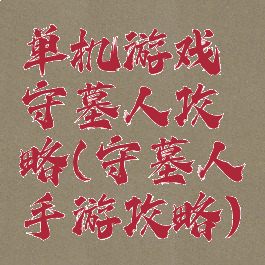 单机游戏
守墓人攻
略(守墓人
手游攻略)